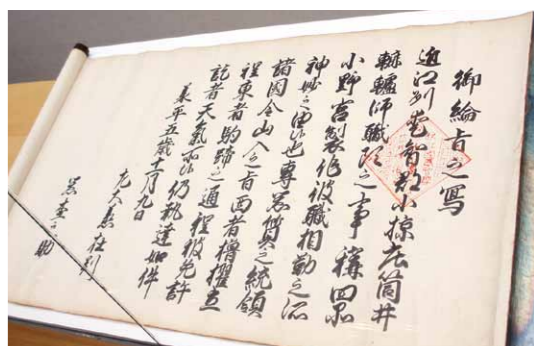 御綸旨之寫
近江州愛智郡小椋庄筒井
轆轤師職頭之事稱四品
小野宮製作彼職相勤之所
神妙之由候也專器質之統領
諸国令山入之旨西者櫓櫂立
程東者駒蹄之通程被免許
訖者天氣所候仍執達如件
承平五歳十一月九日
左大丞在判
器杢之助